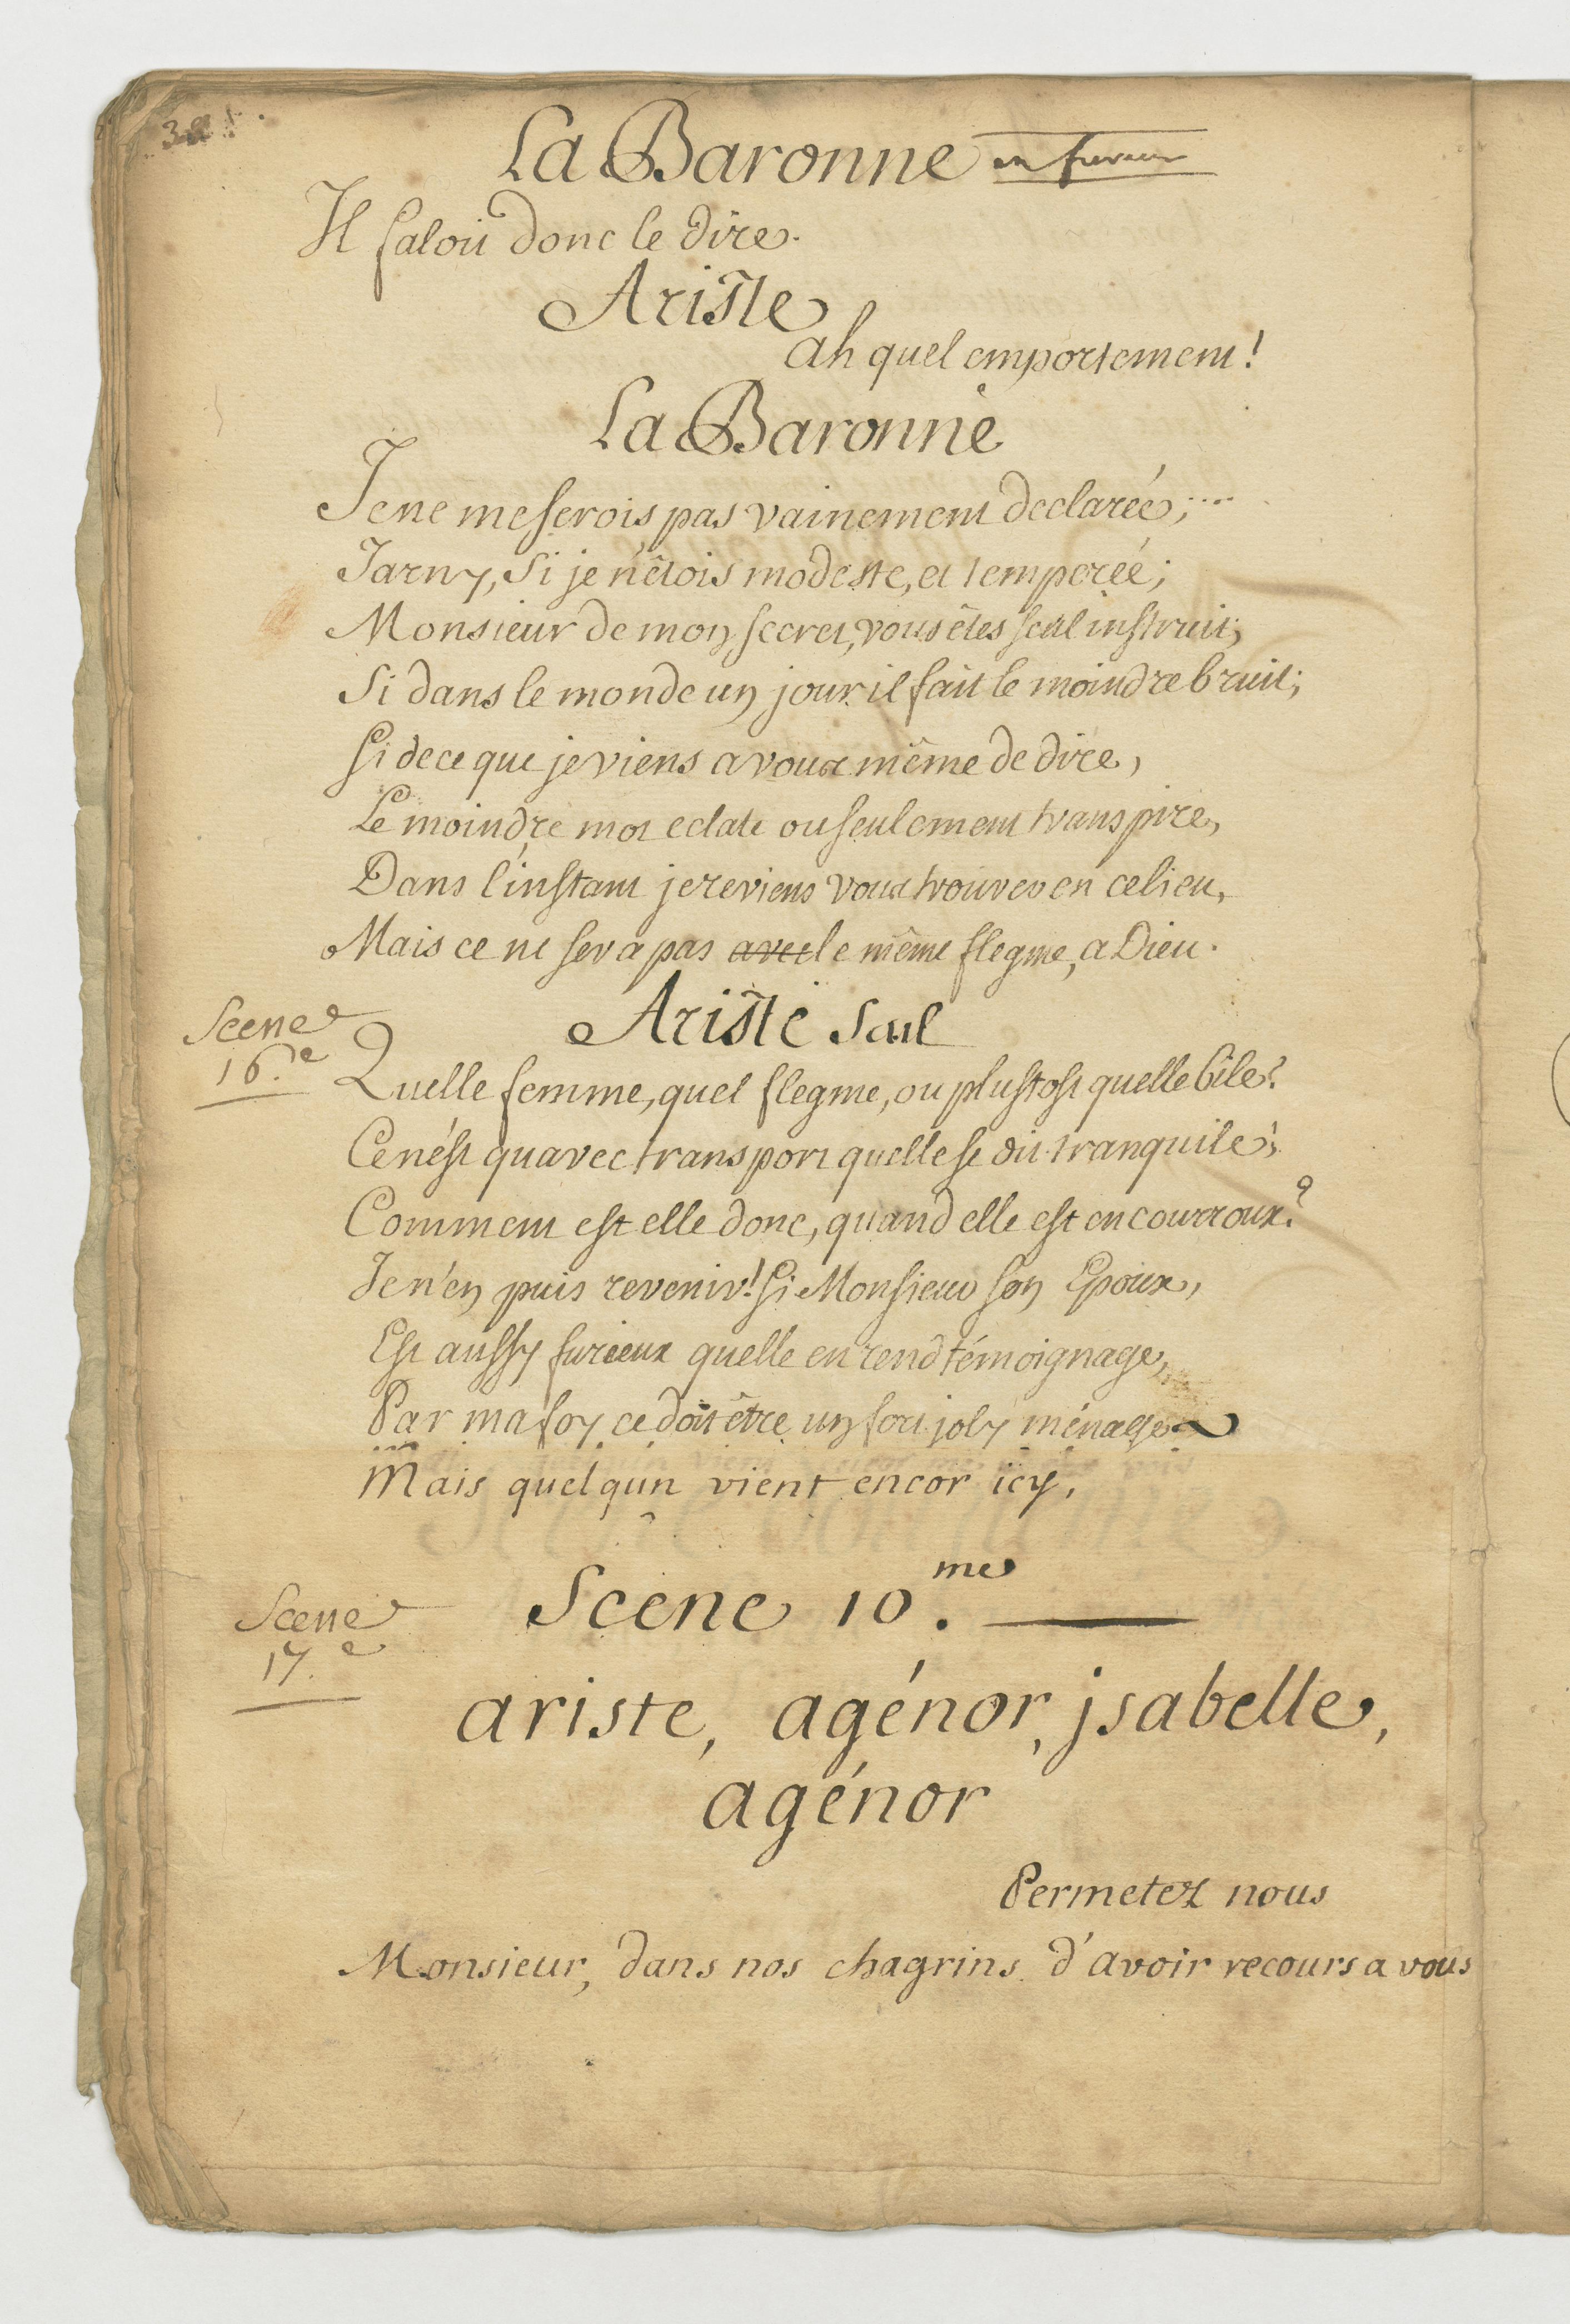 La Baronne en fureur
Il faloit donc le dire.
Ariste
ah quel emportement!
La Baronne
Je ne me serois pas vainement declarée;....
Jarny, Si je n'êtois modeste, et temperée;
Monsieur de mon secret, vous êtes seul instruit;
Si dans le monde un jour il fait le moindre bruit;
Si de ce que je viens a vous même de dire,
Le moindre mot eclate ou seulement transpire,
Dans l'instant je reviens vous trouver en ce lieu,
Mais ce ne sera pas avec le même flegme, a Dieu.
Ariste seul
Scene
16.e
Quelle femme, quel flegme, ou plustost quelle bile?
Ce nést quavec transport quelle se dit tranquile;
Comment est elle donc, quand elle est en courroux?
Je n'en puis revenir! Si Monsieur son Epoux,
Est aussy furieux quelle en rend témoignage,
Par ma foy ce doit être un fort joly ménage
Mais quelqun vient encor icy.
Scene 10.me
Scene
17.e
ariste, agénor, jsabelle,
agénor
Permetez nous
Monsieur, dans nos chagrins d'avoir recours a vous